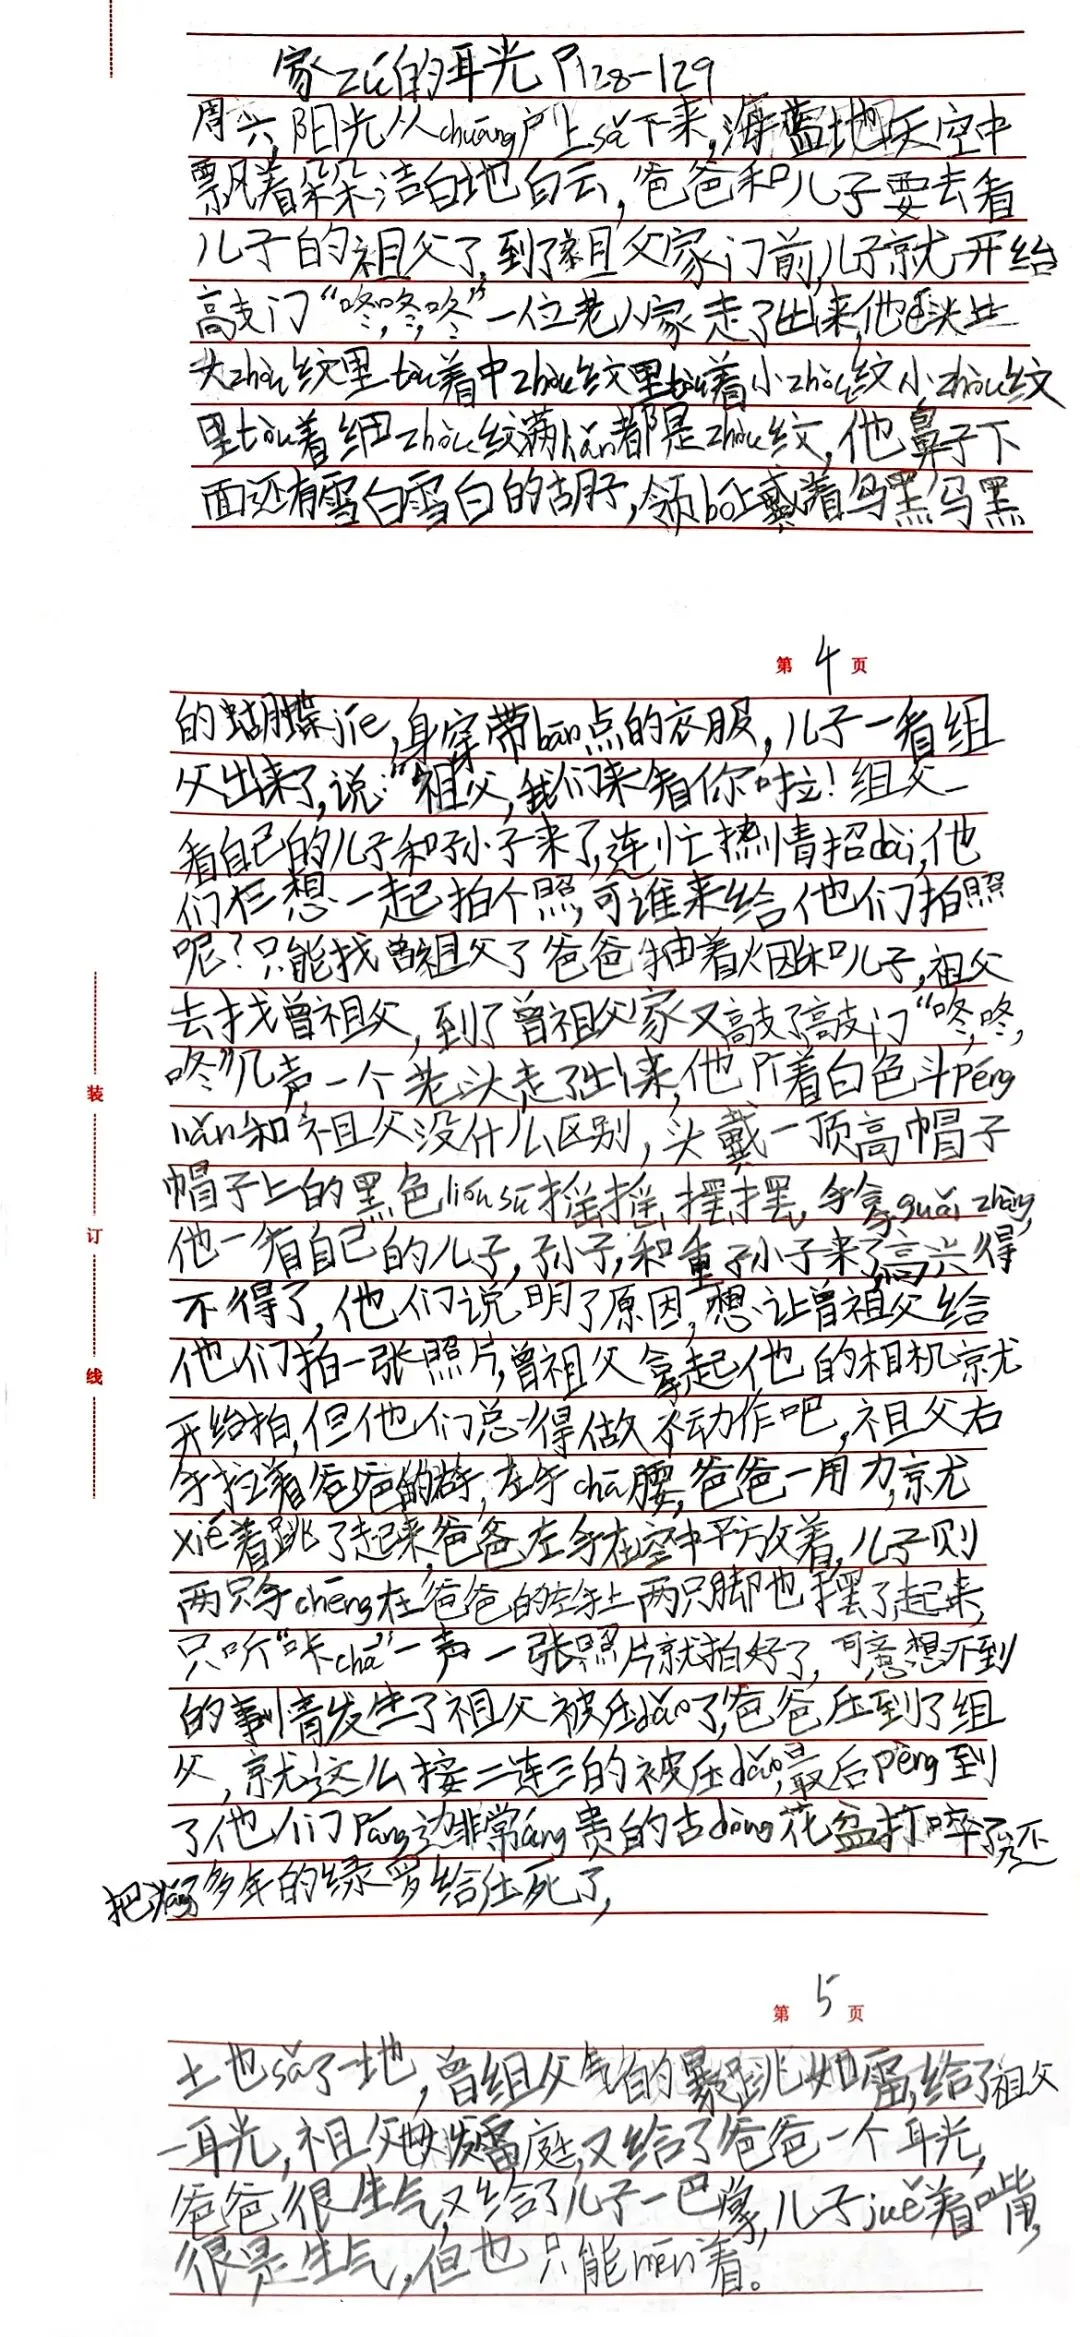 家zú的耳光 P128-129
周六,阳光从chuāng户上sǎ下来,海蓝地天空中
飘着朵朵洁白地白云,爸爸和儿子要去看
儿子的祖父了,到了祖父家门前,儿子就开给
敲门“咚,咚,咚”一位老人家走了出来,他
大zhòu纹里tào着中zhòu纹里tào着小zhòu纹小zhòu纹
里tào着细zhòu纹满liǎn都是zhòu纹,他鼻子下
面还有雪白雪白的胡子,领bó上戴着乌黑乌黑
第4页
的蝴蝶jié,身穿带bān点的衣服,儿子一看组
父出来了,说:“祖父,我们来看你啦!组父一
看自己的儿子和孙子来了,连忙热情招dài,他
们还想一起拍个照,可谁来给他们拍照
呢?只能找曾祖父了爸爸抽着烟和儿子,祖父
去找曾祖父,到了曾祖父家又敲了敲门“咚,咚,
咚”几声,一个老头走了出来,他 着白色斗péng
liǎn和祖父没什么区别,头戴一顶高帽子
帽子上的黑色liúsū摇摇摆摆,手拿guǎi zhàng,
他一看自己的儿子,孙子,和重孙子来了高兴得
不得了,他们说明了原因,想让曾祖父给
他们拍一张照片,曾祖父拿起他的相机就
开给拍,但他们总得做个动作吧,祖父右
手拉着爸爸的 手,左手chā腰,爸爸一用力,就
xié着跳了起来,爸爸左手在空中平放着,儿子则
两只手chēng在爸爸的左手上两只脚也摆了起来,
只听“咔chā”一声一张照片就拍好了,可意想不到
的事情发生了祖父被压dǎo了,爸爸压到了组
父,就这么接二连三的被压dǎo,最后pèng到
了他们páng边非常áng贵的古dǒng花盆打啐了,还
把 了多年的绿罗给压死了,
第5页
土也sǎ了一地,曾组父气的暴跳如雷,给了祖父
一耳光,祖父 发雷庭,又给了爸爸一个耳光,
爸爸很生气,又给了儿子一巴掌,儿子juē着嘴,
很是生气,但也只能mēn着。